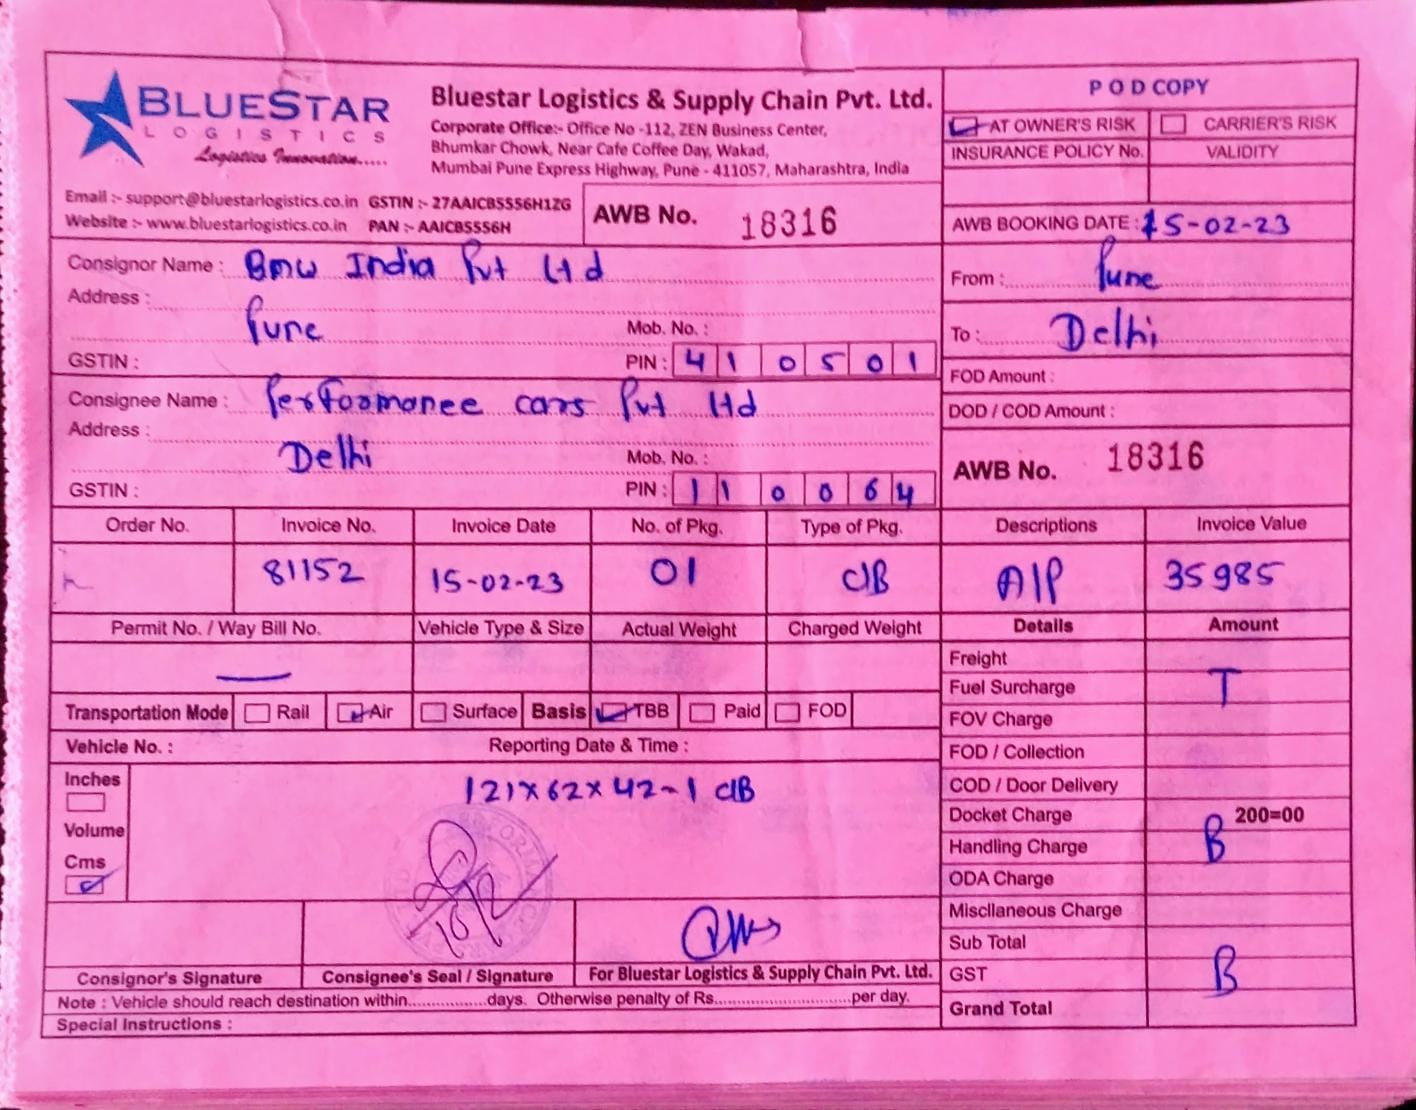 BLUESTAR
LOGISTICS
Logistics Innovation.....
Bluestar Logistics & Supply Chain Pvt. Ltd.
Corporate Office:- Office No -112, ZEN Business Center,
Bhumkar Chowk, Near Cafe Coffee Day, Wakad,
Mumbai Pune Express Highway, Pune - 411057, Maharashtra, India
POD COPY
AT OWNER'S RISK CARRIER'S RISK
INSURANCE POLICY No. VALIDITY
Email :- support@bluestarlogistics.co.in GSTIN :- 27AAICB5556H1ZG
Website :- www.bluestarlogistics.co.in PAN :- AAICB5556H
AWB No. 18316
AWB BOOKING DATE : 15-02-23
Consignor Name : Bmw India Pvt Ltd
Address :
Pune Mob. No. :
GSTIN : PIN : 410501
From : Pune
To : Delhi
FOD Amount :
DOD / COD Amount :
Consignee Name : Performance cars Pvt Ltd
Address :
Delhi Mob. No. :
GSTIN : PIN : 110064
AWB No. 18316
Order No. Invoice No. Invoice Date No. of Pkg. Type of Pkg. Descriptions Invoice Value
81152 15-02-23 01 C/B A/P 35985
Permit No. / Way Bill No. Vehicle Type & Size Actual Weight Charged Weight Details Amount
—
Transportation Mode Rail Air Surface Basis TBB Paid FOD
Vehicle No. : Reporting Date & Time :
Inches
Volume
Cms
121x62x42-1 C/B
Freight
Fuel Surcharge T
FOV Charge
FOD / Collection
COD / Door Delivery
Docket Charge 200=00
Handling Charge B
ODA Charge
Miscllaneous Charge
Sub Total
GST B
Grand Total
Consignor's Signature Consignee's Seal / Signature For Bluestar Logistics & Supply Chain Pvt. Ltd.
Note : Vehicle should reach destination within................days. Otherwise penalty of Rs..............................per day.
Special Instructions :